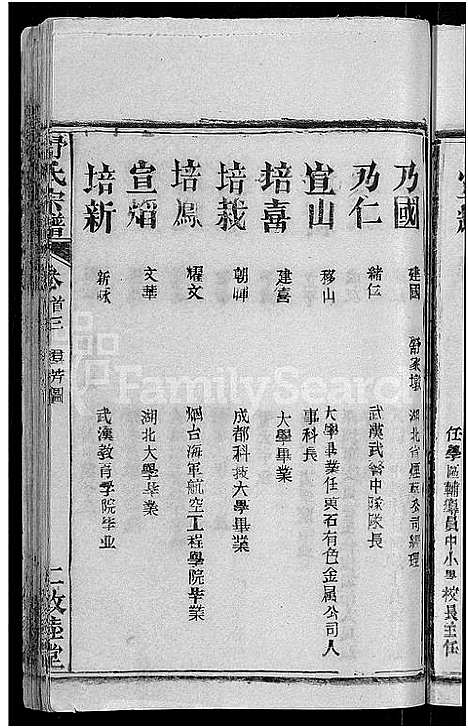 任學區輔導員中小學校長主任
乃國 建國 舒家墩 湖北省煙草公司經理
乃仁 緒仁 武漢武警中隊隊長
宜山 移山 大學畢業任黄石有色金属公司人事科長
培喜 建喜 大學畢業
培栽 朝暉 成都科技大學畢業
培鳳 耀文 烟台海軍航空工程學院毕業
宣焰 文華 湖北大學毕業
培新 新咏 武漢教育學院毕业
舒氏宗譜 卷首三 群芳圖 敦睦堂
FamilySearch